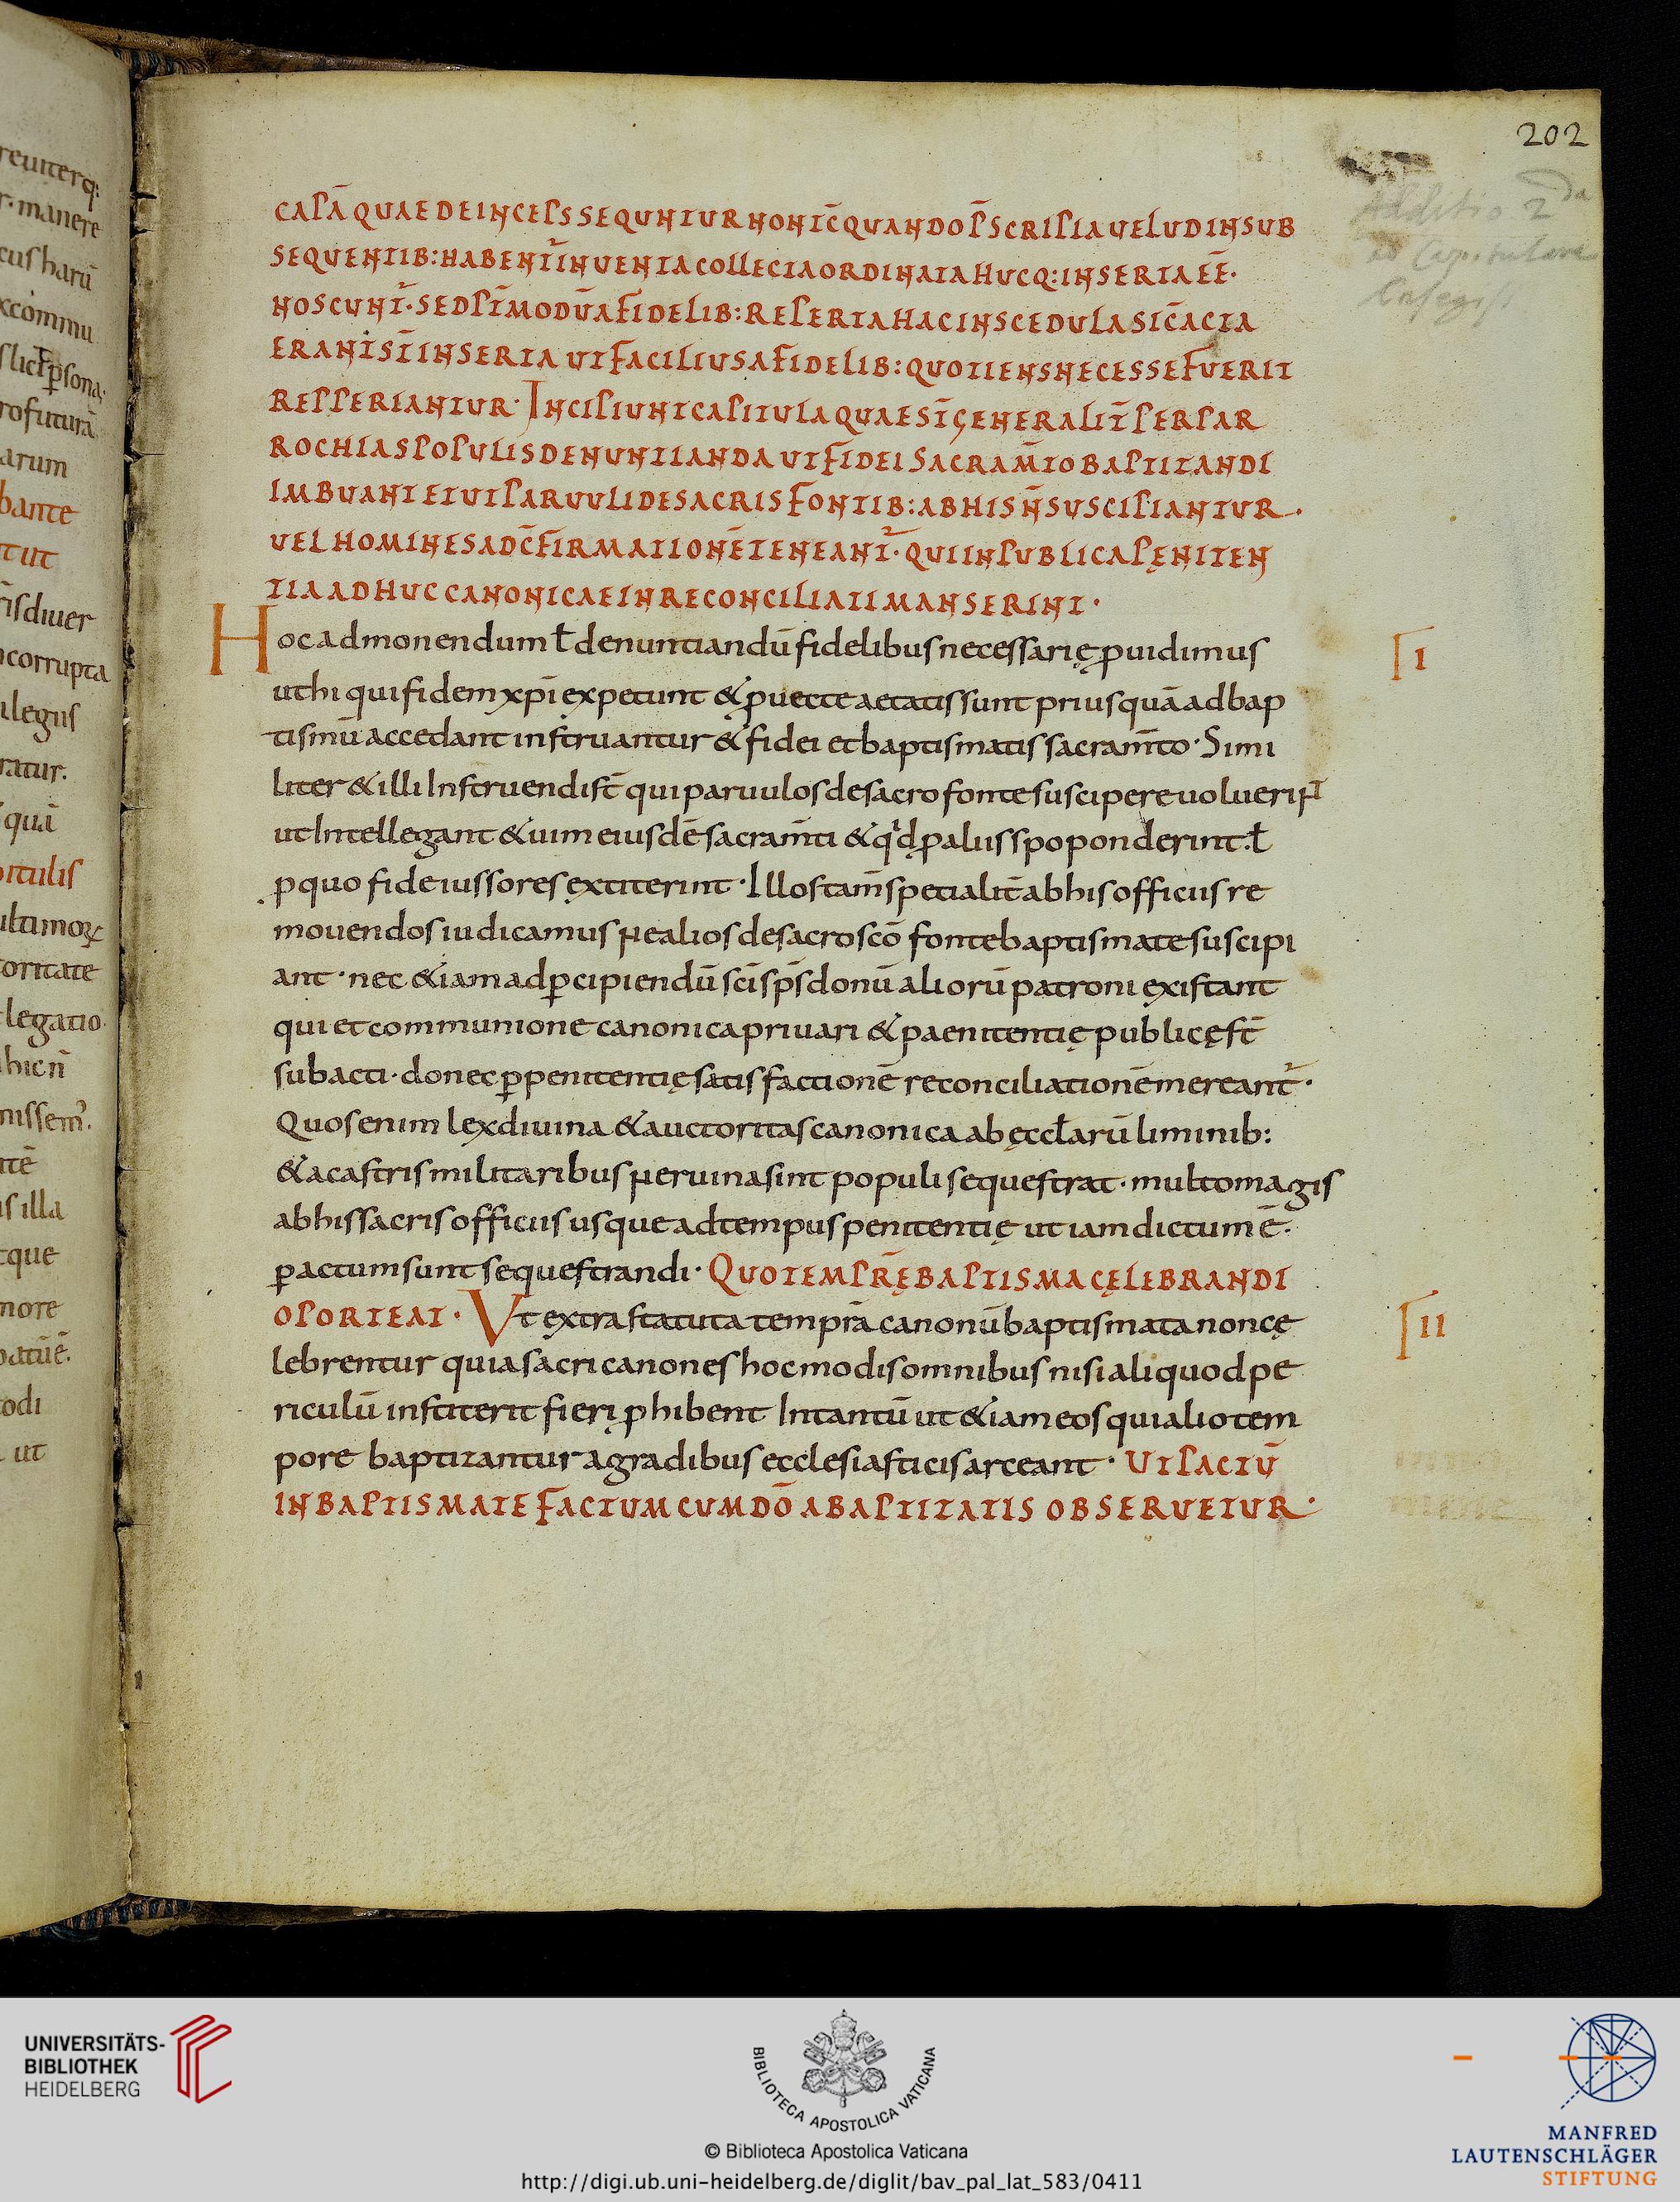 202
Additio 2da
ad Capitulare
CAPĀ QUAE DEINCEPS SEQUNTUR NON IC̄ QUANDO PS̄CRIPTA VELUD IN SUB
SEQUENTIB: HABENT̄ INVENTA COLLECTA ORDINATA HUCQ: INSERTA EĒ·
NOSCUNT̄· SED PT̄MODŪ A FIDELIB: REPERTA HAC IN SCEDULA SIC̄ ACTA
ERANT̄ ST̄ INSERTA UT FACILIUS A FIDELIB: QUOTIENS NECESSE FUERIT
REPPERIANTUR· INCIPIUNT CAPITULA QUAE ST̄ GENERALIT̄ PER PAR
ROCHIAS POPULIS DENUNTIANDA UT FIDEI SACRAM̄TO BAPTITANDI
IMBUANT ET UT PARVULI DE SACRIS FONTIB: AB HIS N̄ SUSCIPIANTUR·
VEL HOMINES AD C̄FIRMATIONĒ TENEANT̄· QUI IN PUBLICA PĘNITEN
TIA ADHUC CANONICAE INRECONCILIATI MANSERINT·
Hoc admonendum ł denuntiandū fidelibus necessarię ꝓuidimus
I
ut hi qui fidem xp̄i ęxpetunt & ꝓuecte aetatis sunt priusquā ad bap
tismū accedant instruantur & fidei et baptismatis sacram̄to· Simi
liter & illi Instruendi st̄ qui paruulos de sacro fonte suscipere uoluerint̄
ut Intellegant & uim eiusdē sacram̄ti & qd ꝓ aliis spoponderint· ł
ꝓ quo fideiussores ęxtiterint· Illos tam̄ specialit̄ ab his officiis re
mouendos iudicamus ne alios de sacroscō fonte baptismate suscipi
ant· nec &iam ad ꝑcipiendū scī sp̄s donū aliorū patroni ęxistant
qui et communione canonica priuari & paenitentię publicę st̄
subacti· donec ꝑ penitentię satisfactionē reconciliationē mereant̄·
Quos enim lex diuina & auctoritas canonica ab ęccłarū liminib:
& a castris militaribus ne ruina sint populi sequestrat· multo magis
ab his sacris officiis usque ad tempus penitentię ut iam dictum ē·
ꝑactum sunt sequestrandi· QUO TEMPR̄Ę BAPTISMA CĘLEBRANDI
OPORTEAT· Vt ęxtra statuta temprā canonū baptismata non cę
II
lebrentur quia sacri canones hoc modis omnibus nisi aliquod pe
riculū institerit fieri ꝓhibent Intantū ut &iam eos qui alio tem
pore baptizantur a gradibus ecclesiasticis arceant· UT PACTŪ
IN BAPTISMATE FACTUM CUM DŌ A BAPTITATIS OBSERVETUR·
reuiterq:
r· manere
cus harū
xcōmmu
ꝑsona·
rofuturā
arum
bante
ut
is diuer
ncorrupta
legiis
ratur.
quā
rtulis
ultimoꝝ
toritate
legatio
hic n̄
nissem̄
tē
s illa
que
more
odi
ut
UNIVERSITÄTS-
BIBLIOTHEK
HEIDELBERG
BIBLIOTECA APOSTOLICA VATICANA
© Biblioteca Apostolica Vaticana
http://digi.ub.uni-heidelberg.de/diglit/bav_pal_lat_583/0411
MANFRED
LAUTENSCHLÄGER
STIFTUNG